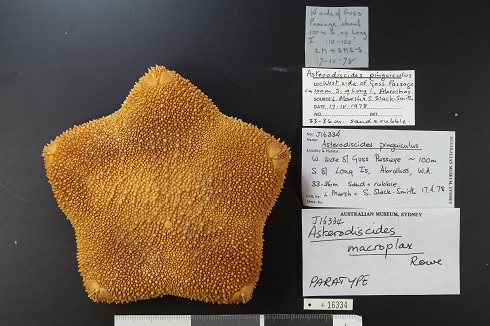 W side of Goss
Passage about
100m S of Long
I 110-120'
LM + SMS-S
17-IV-'78
Asterodiscides pinguiculus
LOC. West side of Goss Passage
ca 100m S. of Long I., Abrolhos.
SOURCE L. Marsh & S. Slack-Smith
DATE 17. IV. 1978
NO. DET.
33-36m. sand & rubble.
No. J16334
Name: Asterodiscides pinguiculus
Locality & Habitat:
W. side of Goss Passage ~ 100m
S. of Long Is, Abrolhos, W.A.
33-36m Sand & rubble.
L. Marsh & S. Slack-Smith 17.4.78
AUSTRALIAN MUSEUM SYDNEY
AUSTRALIAN MUSEUM, SYDNEY
J16334
Asterodiscides
macroplax
Rowe
PARATYPE
16334